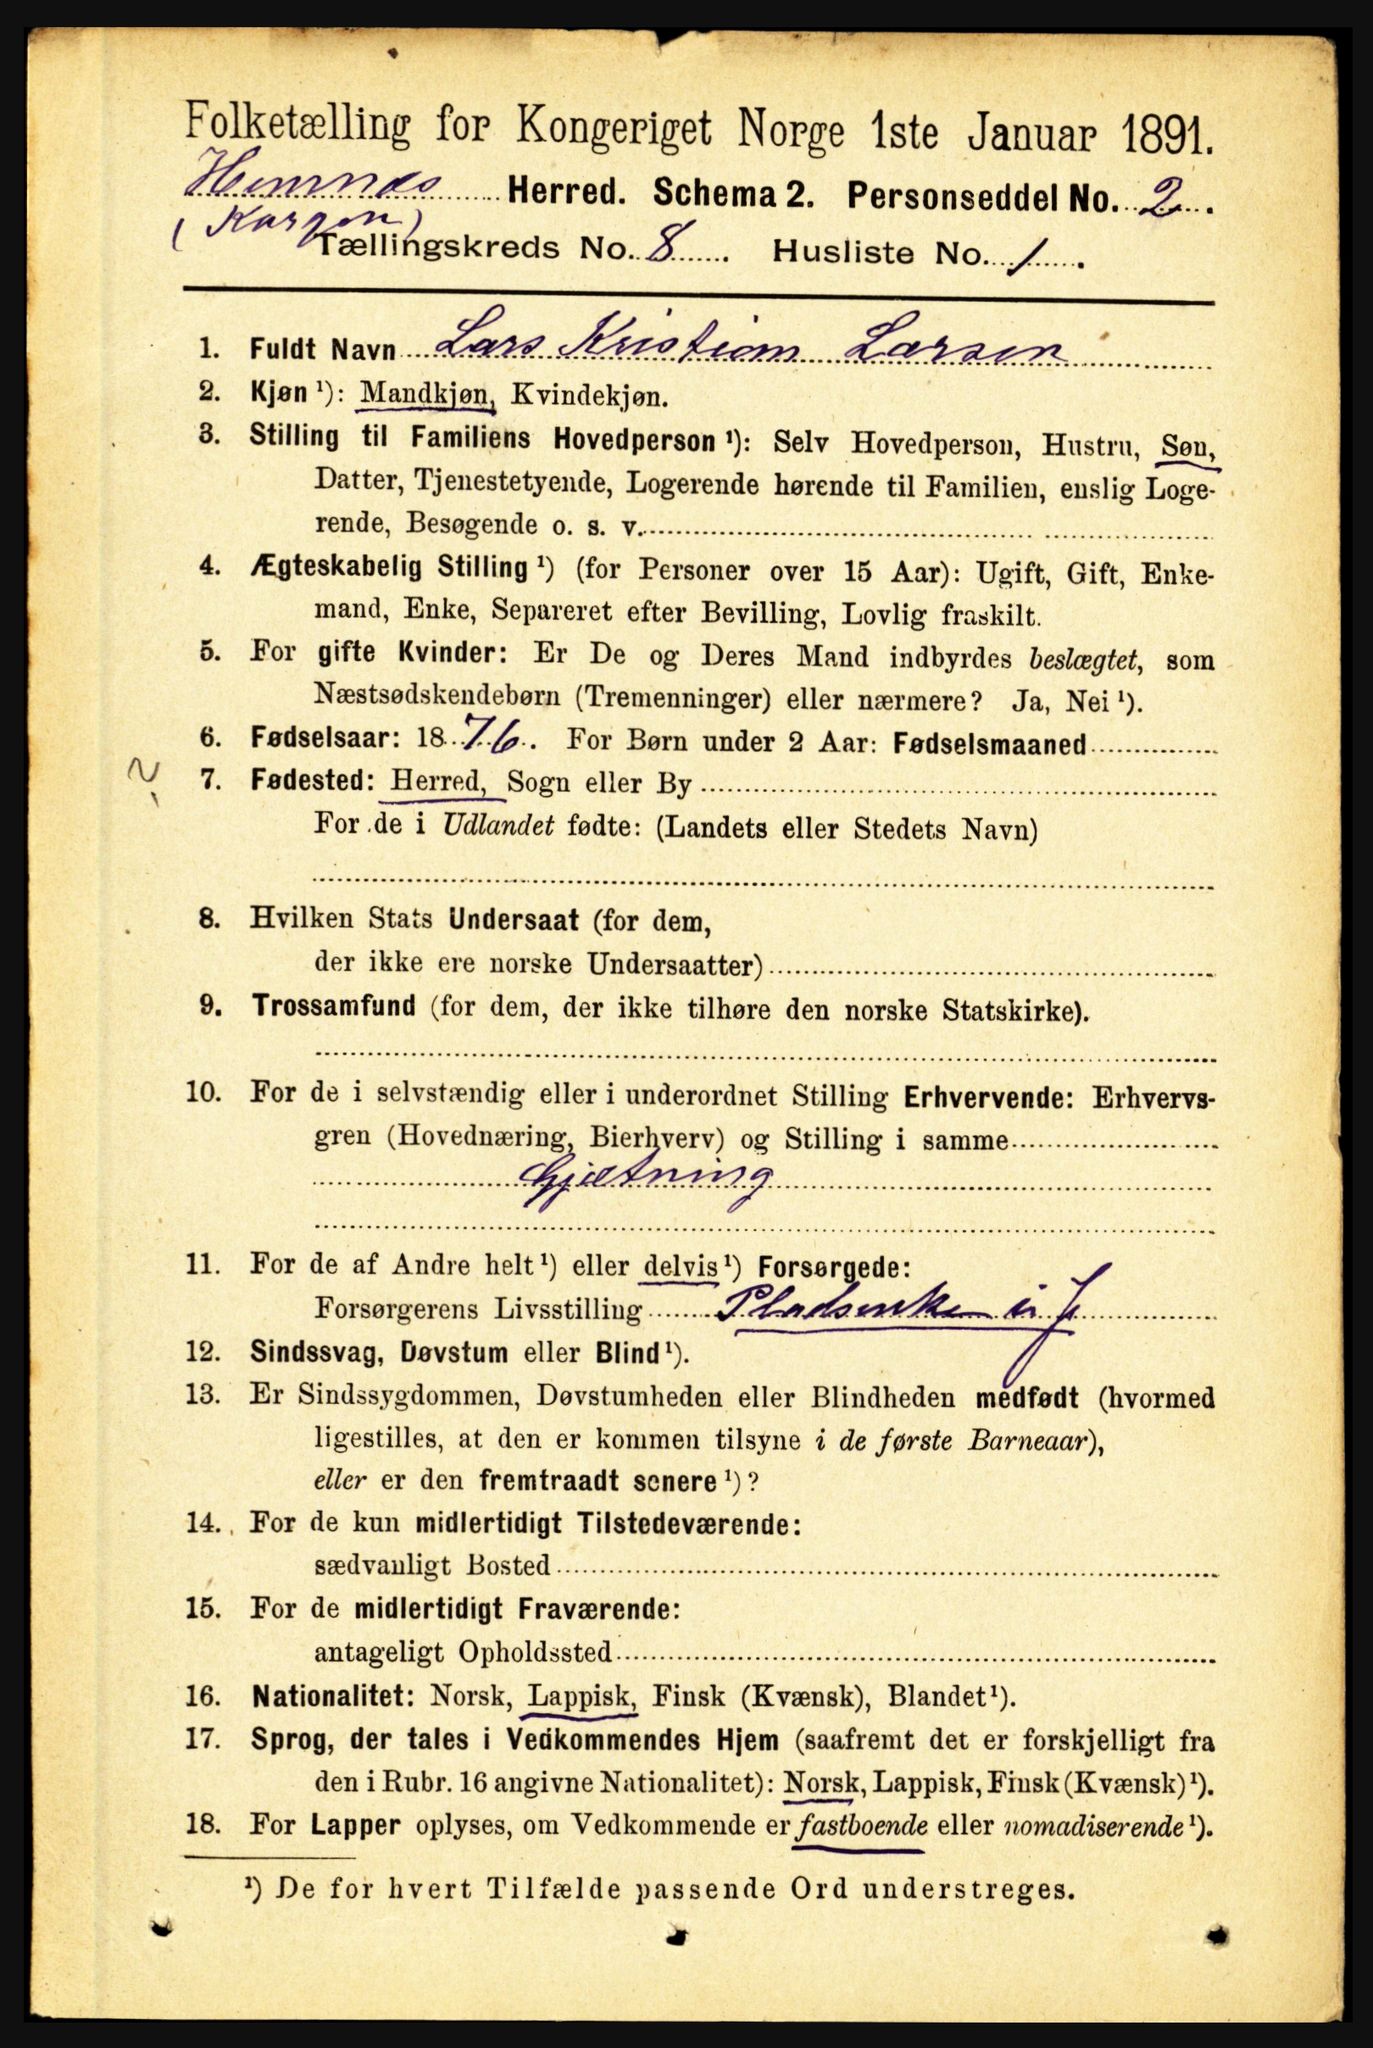 Folketælling for Kongeriget Norge 1ste Januar 1891.
Hemnæs Herred. Schema 2. Personseddel No. 2.
(Korgen)
Tællingskreds No. 8. Husliste No. 1.
1. Fuldt Navn Lars Kristian Larsen
2. Kjøn ¹): Mandkjøn, Kvindekjøn.
3. Stilling til Familiens Hovedperson ¹): Selv Hovedperson, Hustru, Søn,
Datter, Tjenestetyende, Logerende hørende til Familien, enslig Loge-
rende, Besøgende o. s. v.
4. Ægteskabelig Stilling ¹) (for Personer over 15 Aar): Ugift, Gift, Enke-
mand, Enke, Separeret efter Bevilling, Lovlig fraskilt.
5. For gifte Kvinder: Er De og Deres Mand indbyrdes beslægtet, som
Næstsødskendebørn (Tremenninger) eller nærmere? Ja, Nei ¹).
6. Fødselsaar: 1876. For Børn under 2 Aar: Fødselsmaaned
7. Fødested: Herred, Sogn eller By
For de i Udlandet fødte: (Landets eller Stedets Navn)
8. Hvilken Stats Undersaat (for dem,
der ikke ere norske Undersaatter)
9. Trossamfund (for dem, der ikke tilhøre den norske Statskirke).
10. For de i selvstændig eller i underordnet Stilling Erhvervende: Erhvervs-
gren (Hovednæring, Bierhverv) og Stilling i samme
Gjætning
11. For de af Andre helt ¹) eller delvis ¹) Forsørgede:
Forsørgerens Livsstilling Pladsenke
12. Sindssvag, Døvstum eller Blind ¹).
13. Er Sindssygdommen, Døvstumheden eller Blindheden medfødt (hvormed
ligestilles, at den er kommen tilsyne i de første Barneaar),
eller er den fremtraadt senere ¹)?
14. For de kun midlertidigt Tilstedeværende:
sædvanligt Bosted
15. For de midlertidigt Fraværende:
antageligt Opholdssted
16. Nationalitet: Norsk, Lappisk, Finsk (Kvænsk), Blandet ¹).
17. Sprog, der tales i Vedkommendes Hjem (saafremt det er forskjelligt fra
den i Rubr. 16 angivne Nationalitet): Norsk, Lappisk, Finsk (Kvænsk) ¹).
18. For Lapper oplyses, om Vedkommende er fastboende eller nomadiserende ¹).
¹) De for hvert Tilfælde passende Ord understreges.